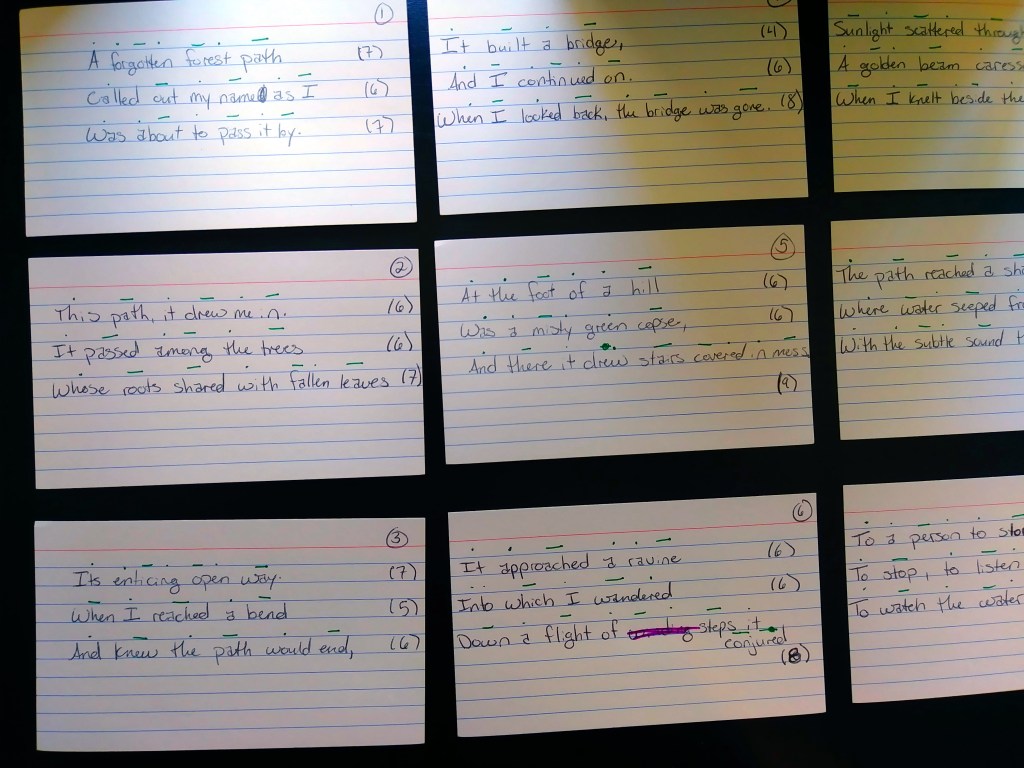 1
A forgotten forest path (7)
Called out my name as I (6)
Was about to pass it by. (7)
2
This path, it drew me in. (6)
It passed among the trees (6)
Whose roots shared with fallen leaves (7)
3
Its enticing open way. (7)
When I reached a bend (5)
And knew the path would end, (6)
It built a bridge, (4)
And I continued on. (6)
When I looked back, the bridge was gone. (8)
5
At the foot of a hill (6)
Was a misty green copse, (6)
And there it drew stairs covered in moss
(9)
6
It approached a ravine (6)
Into which I wandered (6)
Down a flight of steps it
conjured
(8)
Sunlight scattered through
A golden beam
When I knelt beside the
The path reached a
Where water seeped
With the subtle sound
To a person to
To stop, to listen
To watch the water